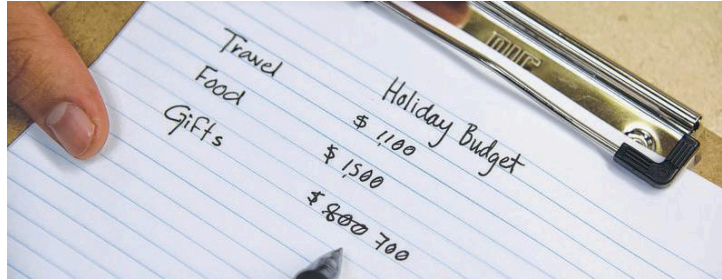 Holiday Budget
Travel $ 1,100
Food $ 1,500
Gifts $ 800 700